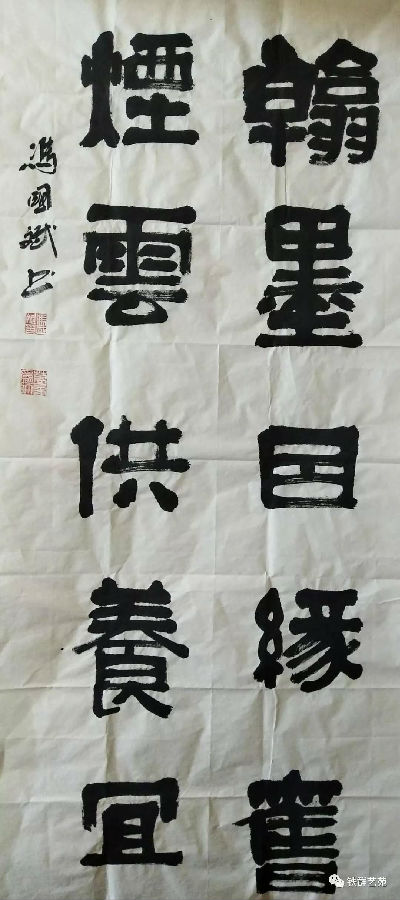 翰墨因緣舊
煙雲供養宜
馮國斌书
铁群艺苑